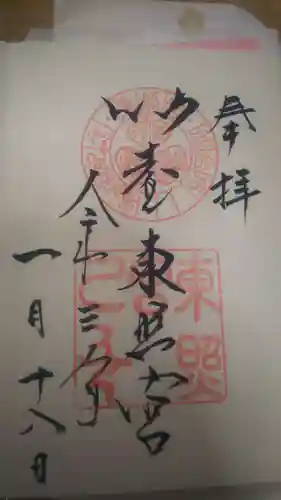 奉拝
仙臺東照宮
令和三年
一月十八日
東照